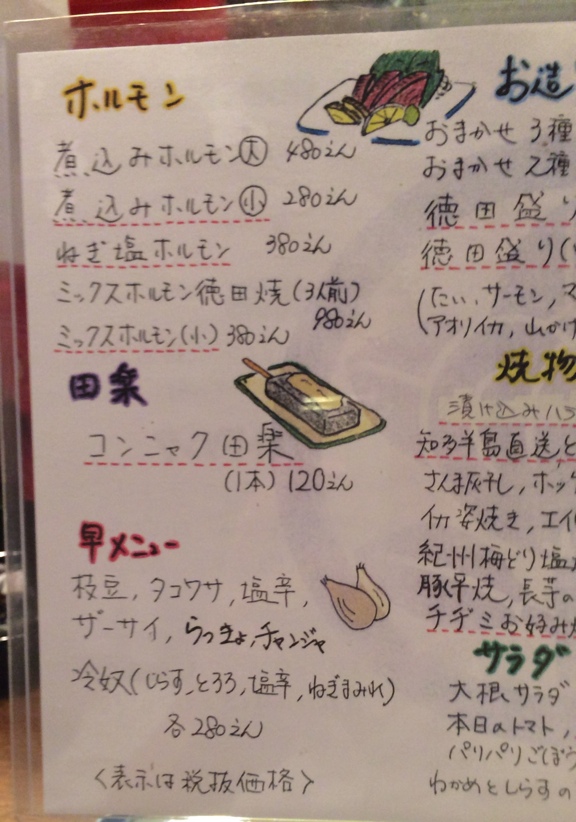 ホルモン
煮込みホルモン(大) 480えん
煮込みホルモン(小) 280えん
ねぎ塩ホルモン 380えん
ミックスホルモン徳田焼(3人前)
980えん
ミックスホルモン(小) 380えん
田楽
コンニャク田楽
(1本) 120えん
早メニュー
枝豆, タコワサ, 塩辛,
ザーサイ, らっきょ, チャンジャ
冷奴(じらす, とろろ, 塩辛, ねぎまみれ)
各280えん
〈表示は税抜価格〉
お造
おまかせ 3種
おまかせ 2種
徳田盛り
徳田盛り(
(たい, サーモン, マ
アオリイカ, 山かけ
焼物
漬け込みハラ
知多半島直送と
さんま灰干し, ホッ
イカ姿焼き, エイ
紀州梅どり塩
豚平焼, 長芋の
チヂミお好み焼
サラダ
大根サラダ
本日のトマト,
パリパリごぼう
わかめとしらすの